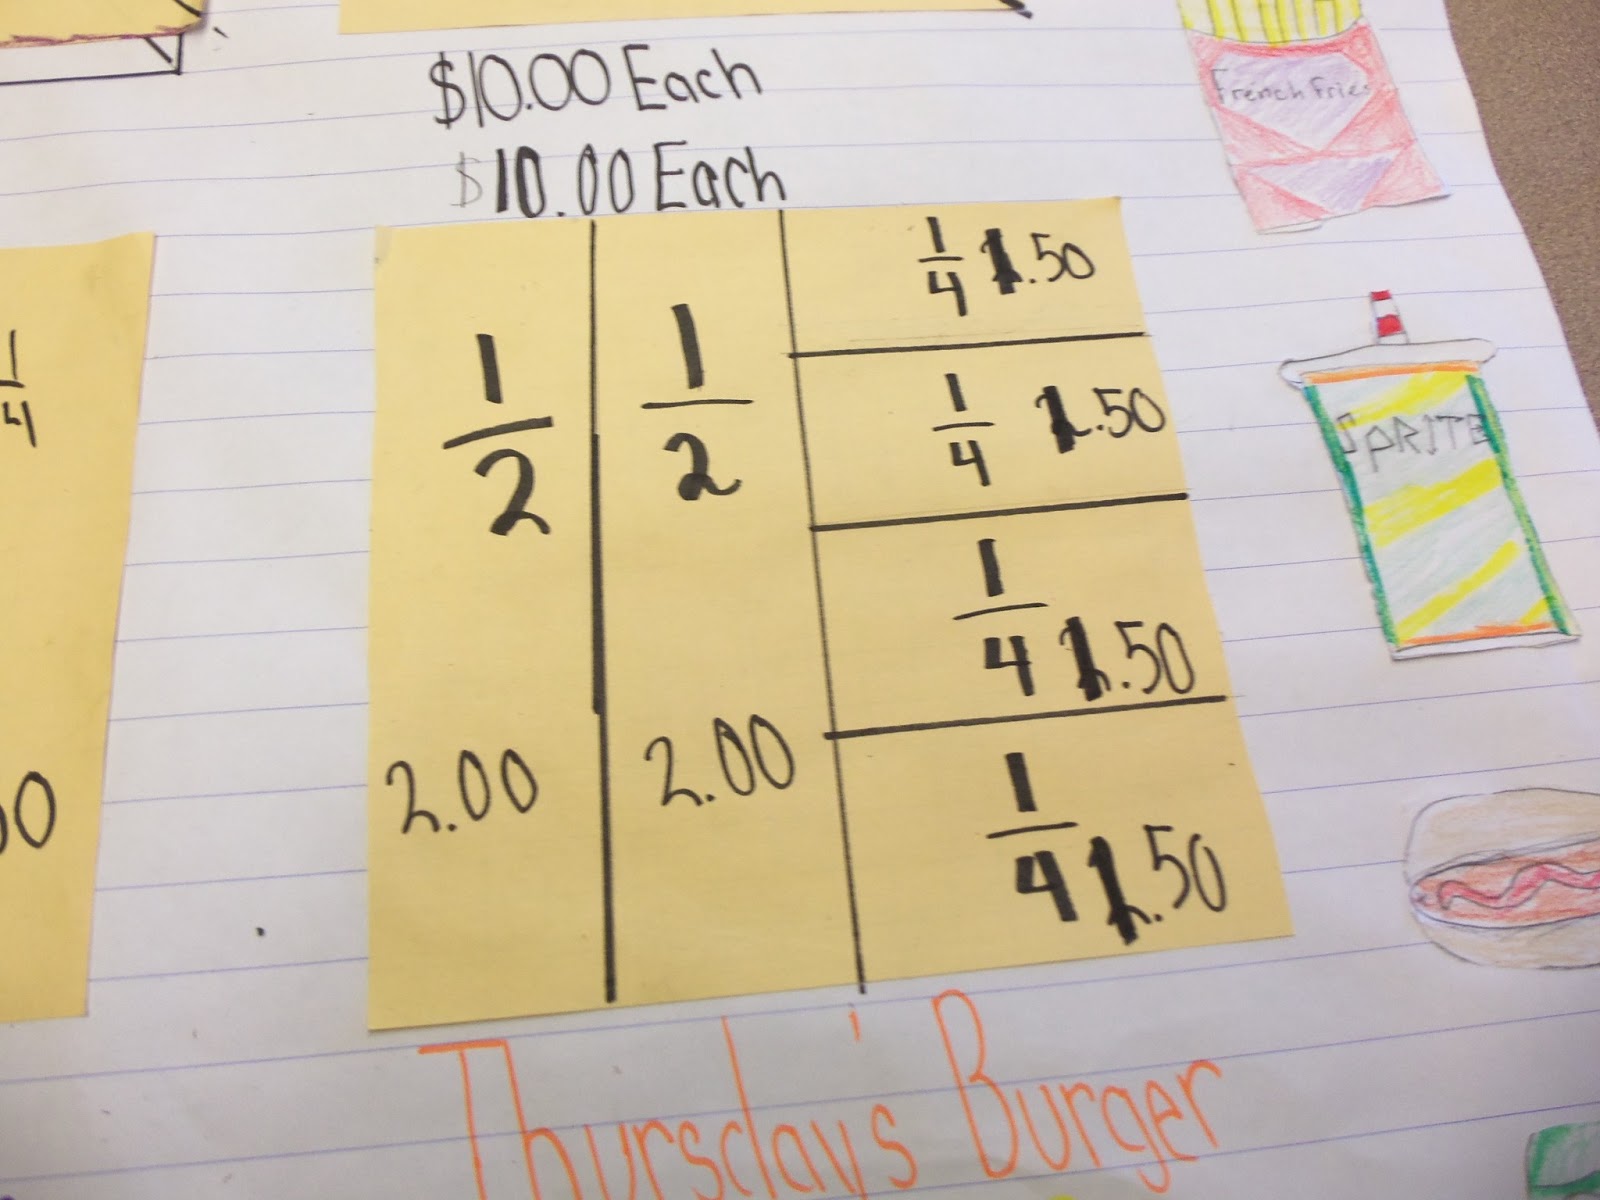 $10.00 Each
$10.00 Each
French Fries
1/4 1.50
1/2
1/2
1/4 1.50
SPRITE
1/4
1/4 1.50
2.00
2.00
1/4 1.50
Thursday's Burger